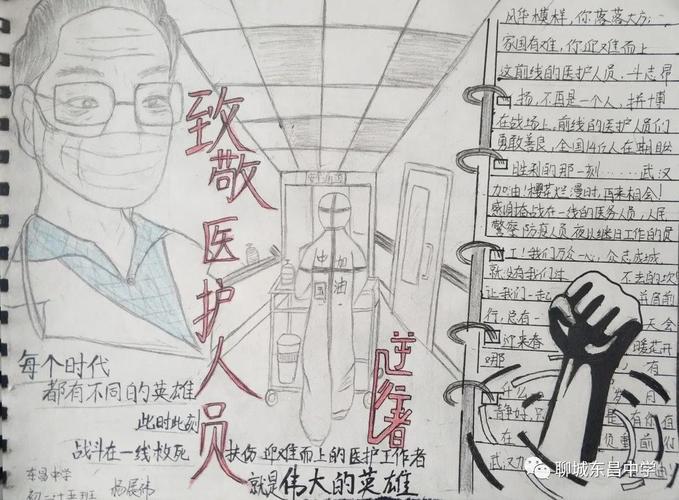 致敬医护人员
逆行者
安全通道
中国
加油
每个时代
都有不同的英雄
此时此刻
战斗在一线救死扶伤 迎难而上的医护工作者
就是伟大的英雄
东昌中学
风华模样，你落落大方；
家国有难，你迎难而上
这前线的医护人员，斗志昂
扬，不再是一个人，拼搏
在战场上，前线的医护人员们
勇敢善良，全国14亿人在期盼
胜利的那一刻……武汉
加油！樱花烂漫时，再来相会！
感谢奋战在一线的医务人员，人民
警察，防疫人员夜以继日工作的员
工！我们万众一心，众志成城
就没有我们过不去的坎
让我们一起
行，总有一 大会
迎来春暖花开
哪 有
什么
静好，只
在 负重前行
武汉加油
聊城东昌中学